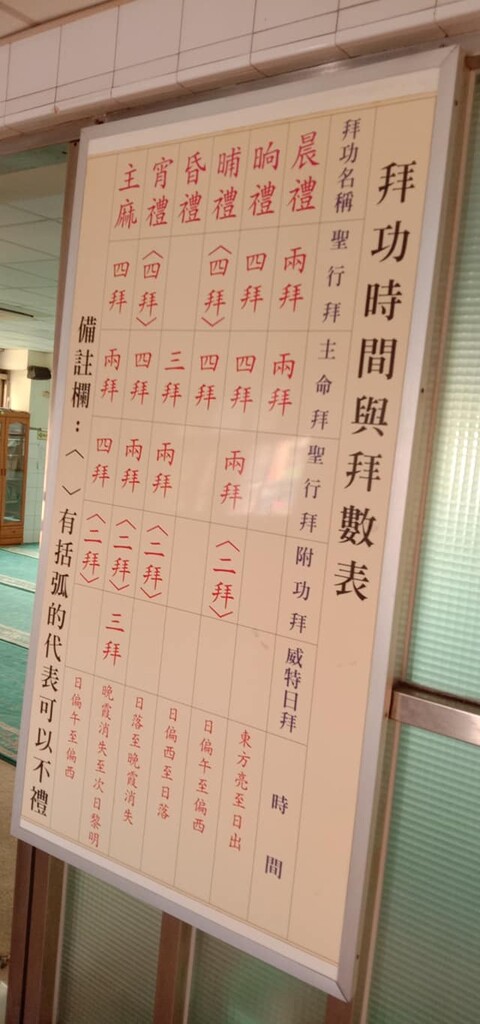 拜功時間與拜數表
拜功名稱 聖行拜 主命拜 聖行拜 附功拜 威特日拜 時間
晨禮 兩拜 兩拜 東方亮至日出
晌禮 四拜 四拜 兩拜 〈二拜〉 日偏午至偏西
晡禮 〈四拜〉 四拜 日偏西至日落
昏禮 三拜 兩拜 〈二拜〉 日落至晚霞消失
宵禮 〈四拜〉 四拜 兩拜 〈二拜〉 三拜 晚霞消失至次日黎明
主麻 四拜 兩拜 四拜 〈二拜〉 日偏午至偏西
備註欄：〈 〉有括弧的代表可以不禮